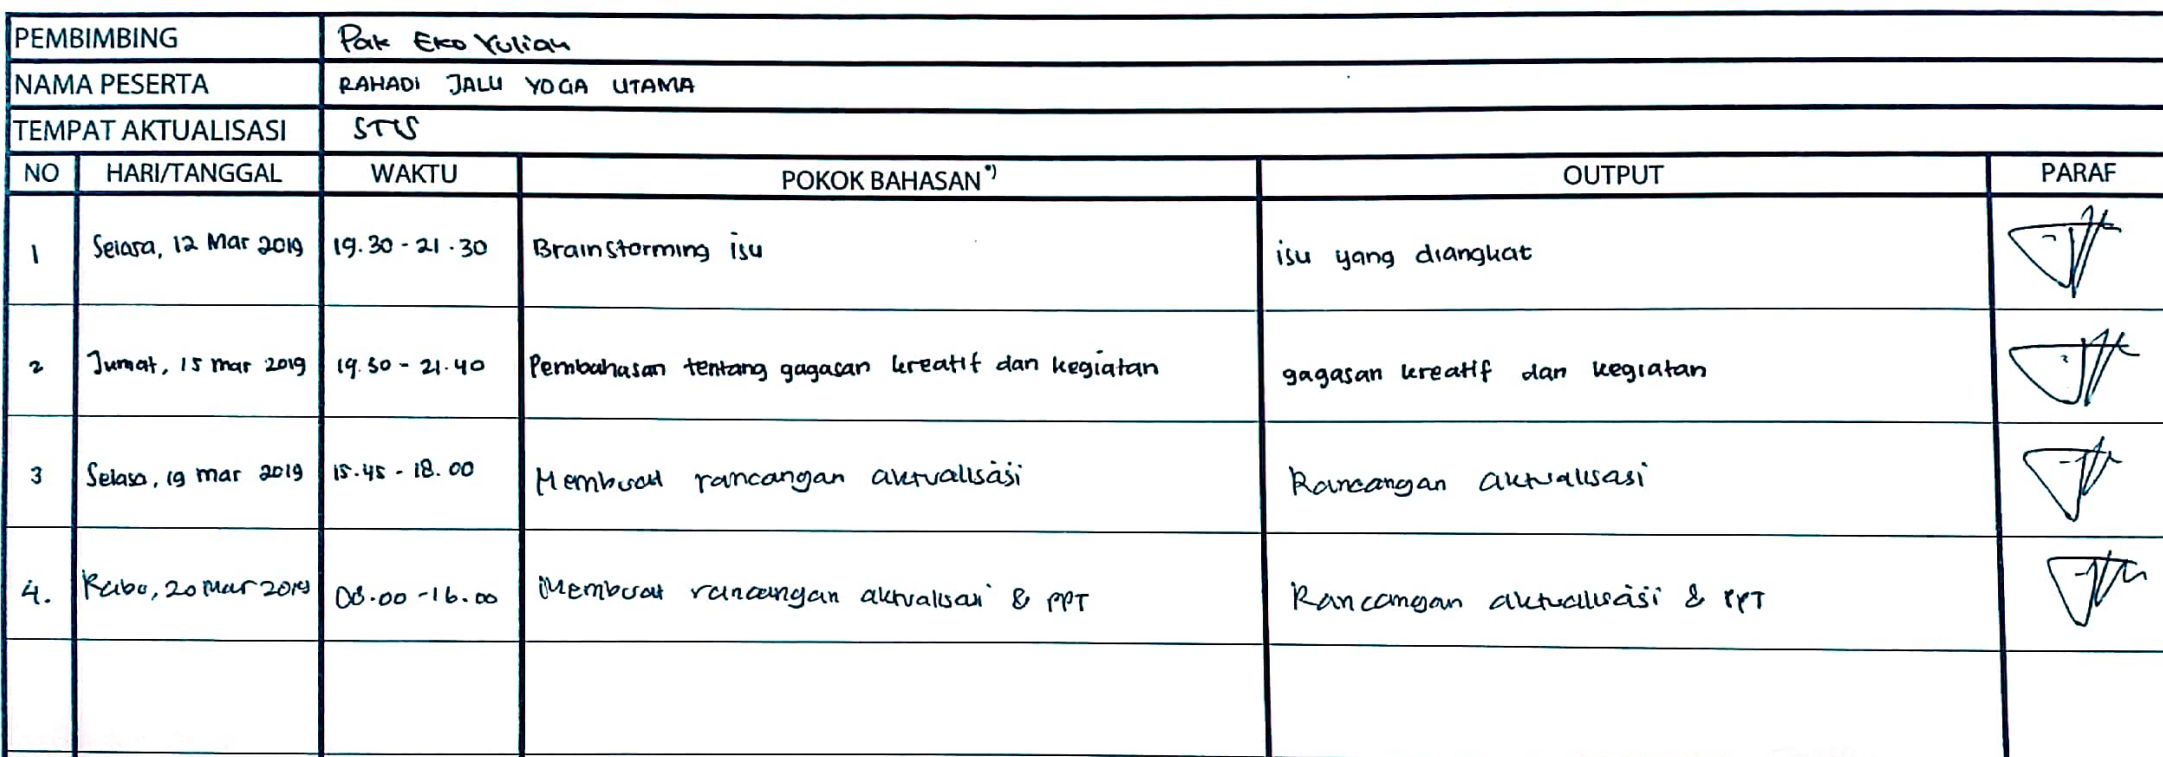 PEMBIMBING Pak Eko Yulian
NAMA PESERTA RAHADI JALU YOGA UTAMA
TEMPAT AKTUALISASI STIS
NO HARI/TANGGAL WAKTU POKOK BAHASAN*) OUTPUT PARAF
1 Selasa, 12 Mar 2019 19.30 - 21.30 Brainstorming isu isu yang diangkat
2 Jumat, 15 Mar 2019 19.30 - 21.40 Pembahasan tentang gagasan kreatif dan kegiatan gagasan kreatif dan kegiatan
3 Selasa, 19 Mar 2019 15.45 - 18.00 Membuat rancangan aktualisasi Rancangan aktualisasi
4. Rabu, 20 Mar 2019 08.00 - 16.00 Membuat rancangan aktualisasi & PPT Rancangan aktualisasi & PPT